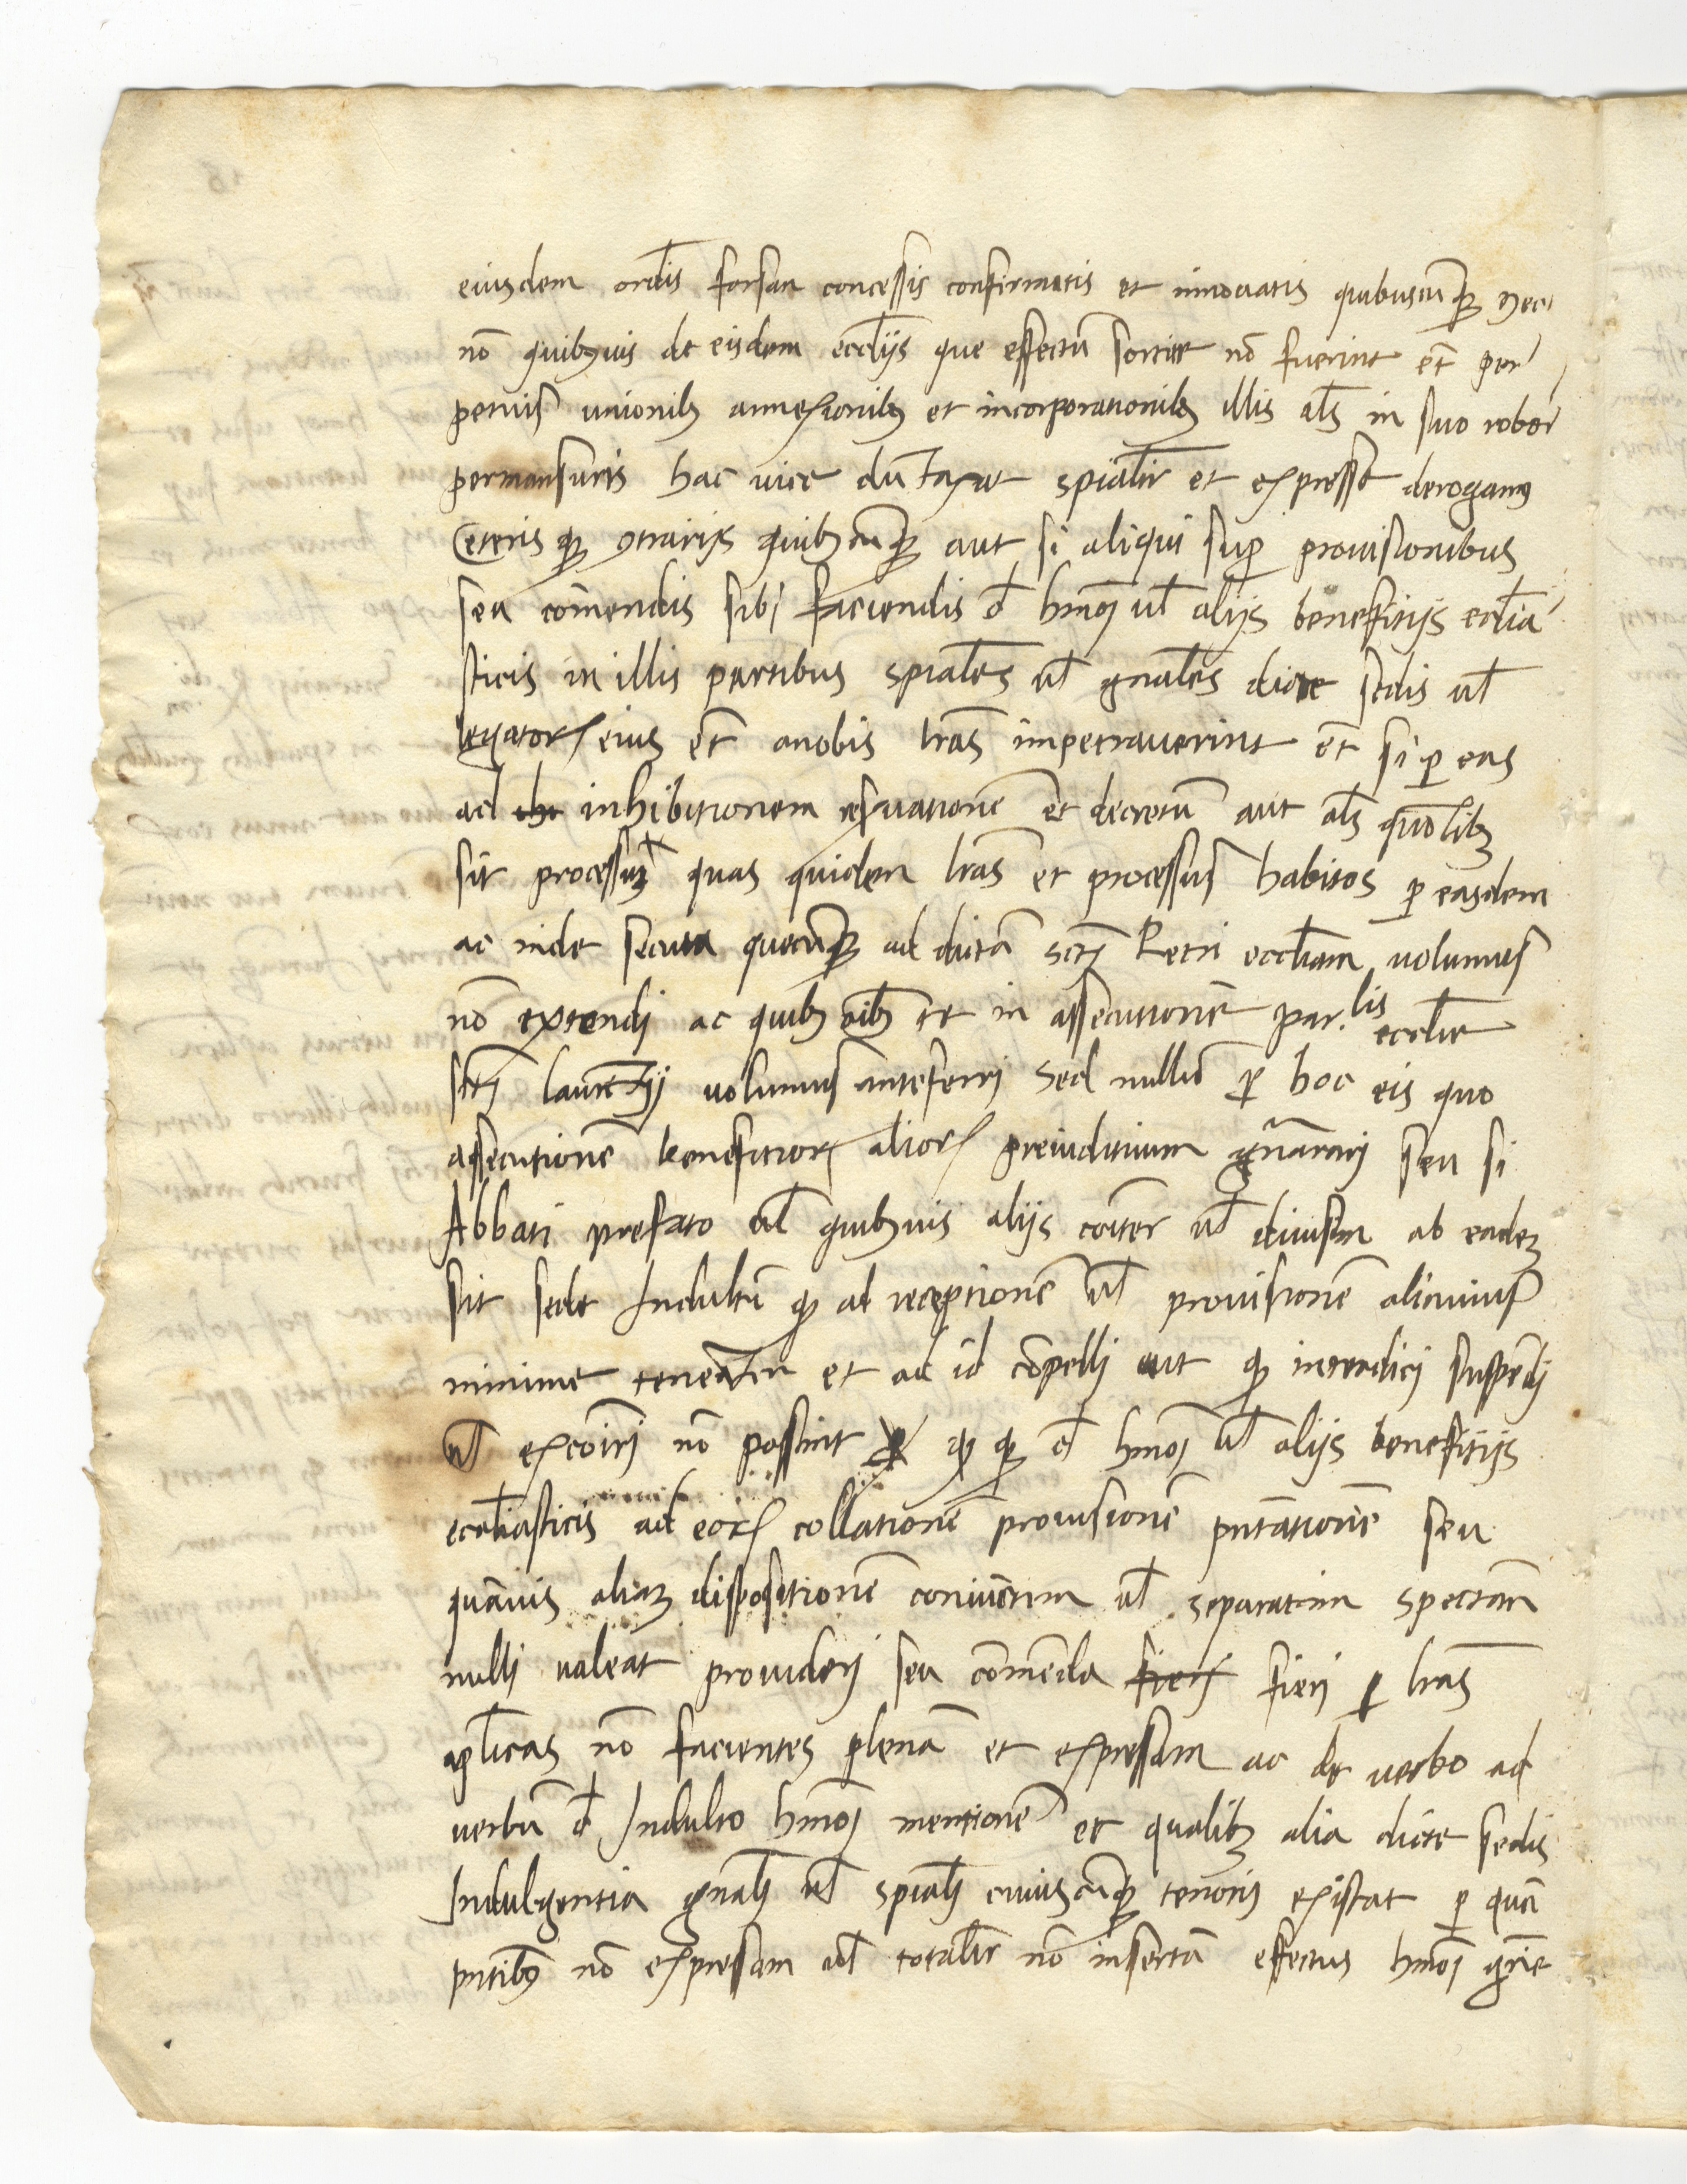 eiusdem ordīs forsan concessis confirmatis et innovatis quibuscūqȝ nec
nō quibȝuis de eisdem eccl̄ijs que effectū sortite nō fuerint et̄ per
petuis unionibȝ annexionibȝ et incorporationibȝ illis al̄s in suo robor̄
permansuris hac vice duntaxat sp̄ialr̄ et expresse derogamꝰ
Ceterisqȝ ꝯtrarijs quibȝcūqȝ aut si aliqui suꝑ provisionibus
seu com̄endis sibj faciendis d̄ hm̄oj ul̄ alijs benefitijs eccl̄ia
sticis in illis partibus sp̄iales ul̄ gn̄ales dicte sedis ul̄
legatorꝝ eius et̄ a nobis lr̄as impetraverint et̄ si ꝑ eas
ad inhibitionem res̄vationē et decretū aut al̄s quōlibȝ
sit processuȝ quas quidem lr̄as et processus habitos ꝑ easdem
ac inde secuta quecūqȝ ad dictā sct̄j Petri eccl̄iam volumus
nō extendj ac quibȝ oībȝ te in assecutionē par.lis eccl̄ie
sct̄j laurētij volumus anteferri Sed nullū ꝓ hoc eis quo
assecutionē benefitiorꝝ aliorꝝ preiuditium gn̄arārj seu si
Abbati prefato ul̄ quibȝvis alijs coīter ul̄ divisim ab eadeȝ
sit sede Indultū qȝ ad receptionē ul̄ provisionē alicuius
minime teneātur et ad id cōpellj aut qȝ interdicj suspēdj
ul̄ excoīrj nō possint qȝ qȝ d̄ hm̄oj ul̄ alijs benefitijs
eccl̄iasticis ad eorꝝ collationē provisionē pn̄tātionē seu
quāvis aliaȝ dispositionē coniunctim ul̄ separatim spectan̄
nullj valeat providerj seu com̄enda fierj fierj ꝑ lr̄as
apl̄icas nō facientes plenā et expressam ac de verbo ad
verbū d̄ Indulto hm̄oj mentionē et qualibȝ alia dicte sedis
Indulgentia gn̄alj ul̄ sp̄ialj cuiuscūqȝ tenoris existat ꝑ quā
pn̄tibȝ nō expressam ul̄ totalr̄ nō insertā effectus hm̄oj gr̄ie